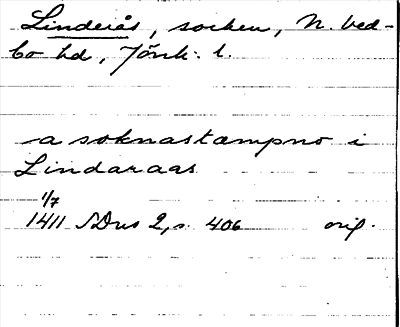 Linderås, socken, N. Ved-
bo hd, Jönk: l.
a soknastæmpno i
Lindaraas
1/7
1411 SDns 2, s. 406 orig.